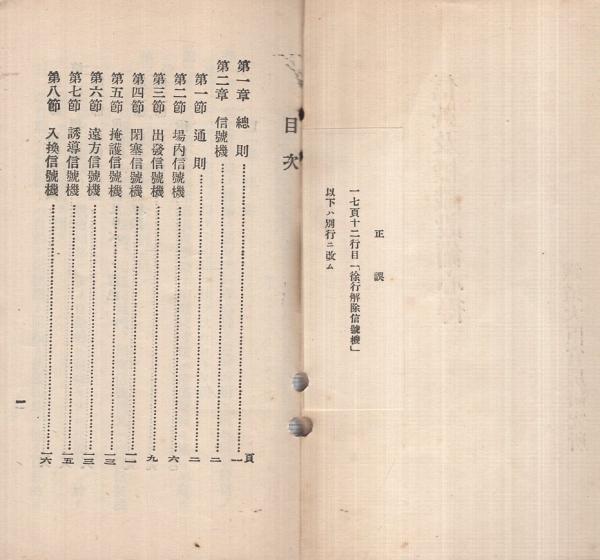 正誤
一七頁十二行目「徐行解除信號機」
以下ハ別行ニ改ム
目次
頁
第一章 總則 一
第二章 信號機 二
第一節 通則 二
第二節 場內信號機 六
第三節 出發信號機 九
第四節 閉塞信號機 一一
第五節 掩護信號機 一三
第六節 遠方信號機 一三
第七節 誘導信號機 一五
第八節 入換信號機 一六
一